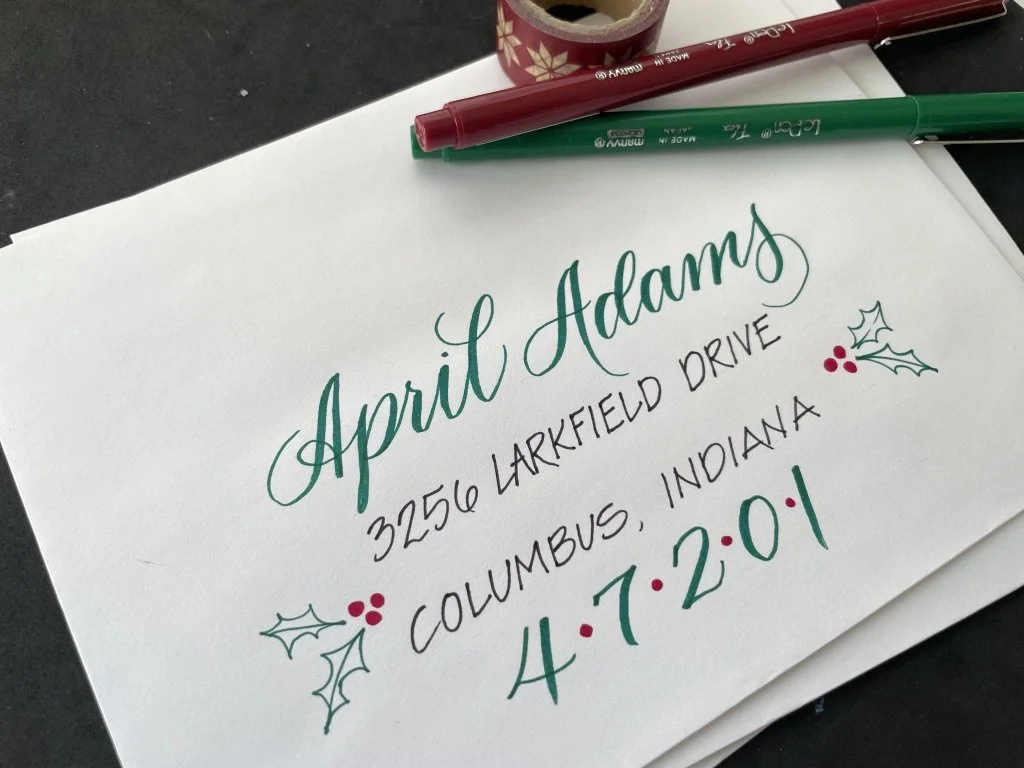 LePen® Flex MADE IN JAPAN MARVY®
LePen® Flex MADE IN JAPAN MARVY®
April Adams
3256 LARKFIELD DRIVE
COLUMBUS, INDIANA
4·7·2·0·1